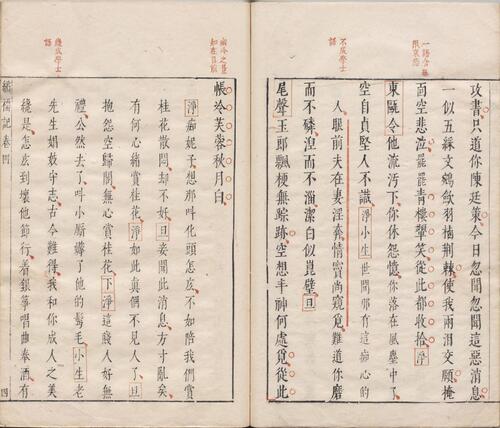 一語含無
限哀悲
不成學士
語
攻書只道你陳廷策今日忽聞這惡消息
一似五綵文鵷歛羽棲荆棘使我兩淚交頤掩
面空悲泣罷罷青樓彈笑從此都收拾淨
東甌令他流汚下你休怨憶你落在風塵中了
空自貞堅人不識淨小生世間那有這痴心的
人眼前夫在妻淫奔情實尚窺覓難道你磨
而不磷湼而不淄潔白似崑璧旦
尾聲玉郎飄梗無踪跡空想丰神何處覓從此
幽冷之景
如在目前
幾成學士
語
帳冷芙蓉秋月白
淨痴妮子想那叫化頭怎麽不如陪我們賞
桂花散悶却不好旦妾聞此消息方寸亂矣
有何心緒賞桂花淨如此眞個不見人了旦
抱怨空歸閨無心賞桂花下淨這賤人好無
禮公然去了叫小厮了他的毛小生老
先生娼守志古今難得我和你成人之美
纔是怎麽到壞他節行看銀箏唱曲奉酒有
繡襦記卷四
四